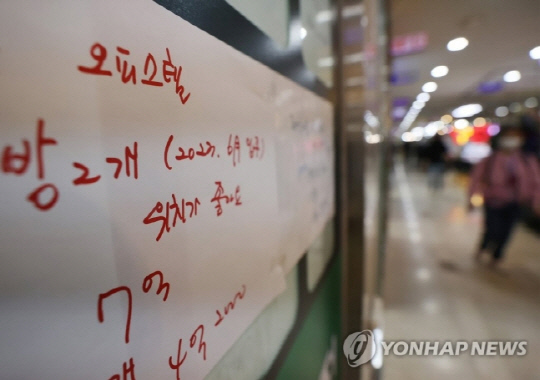 오피스텔
방 2개 (2023. 6月 입주)
위치가 좋아요
7억
4억 2000
YONHAP NEWS